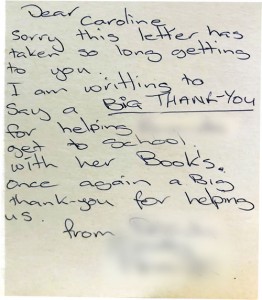 Dear Caroline
Sorry this letter has
taken so long getting
to you.
I am writting to
Say a BIG THANK-YOU
for helping
get to School.
with her Books.
once again a Big
thank-you for helping
us.
from